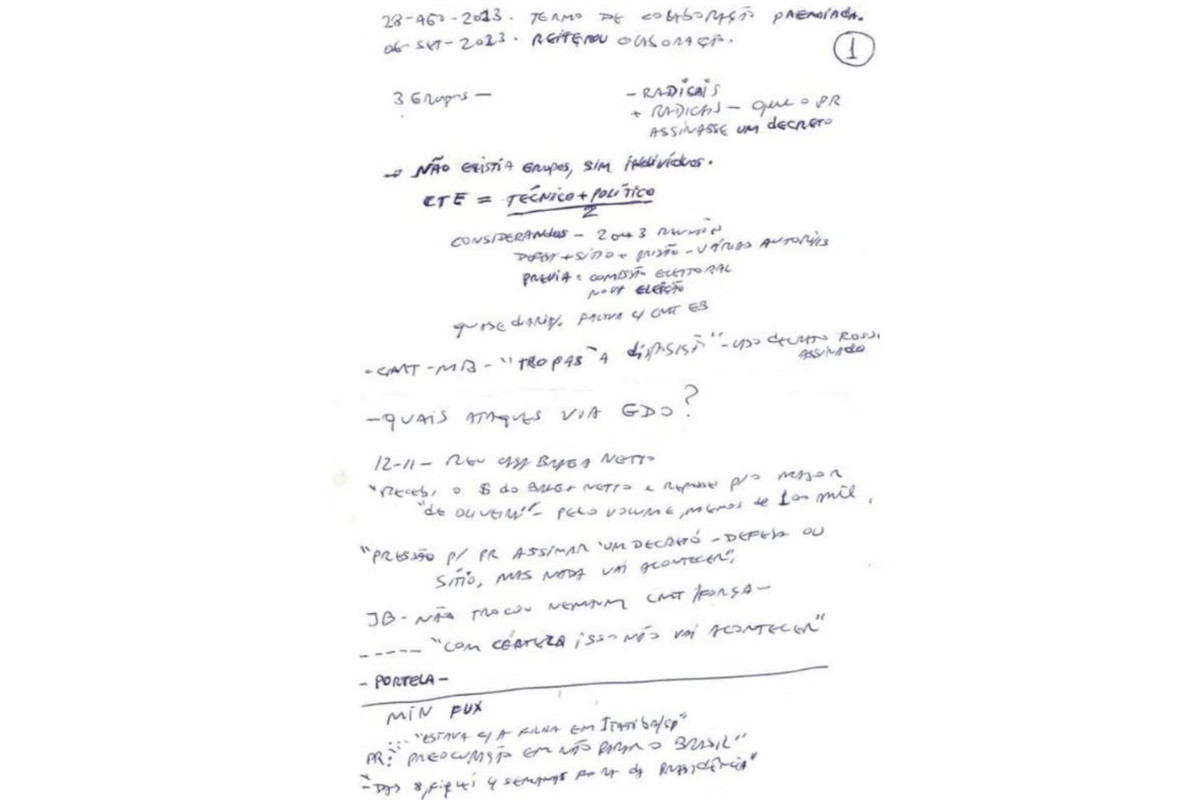 28-AGO-2023. TERMO DE COLABORAÇÃO PREMIADA.
06-SET-2023. REITEROU COLABORAÇÃO.
1
3 Grupos — - RADICAIS
+ RADICAIS - QUE O PR
ASSINASSE UM DECRETO
→ NÃO EXISTIA GRUPOS, SIM INDIVÍDUOS.
CTE = TÉCNICO+POLÍTICO
2
CONSIDERANDOS - 2 ou 3 REUNIÃO
DEFESA+SÍTIO+PRISÃO-VÁRIAS
PREVIA: COMISSÃO ELEITORAL
NOVA ELEIÇÃO
QUASE CMT EB
-CMT-MB-"TROPAS À DISPOSIÇÃO" DECRETO
ASSINADO
-QUAIS ATAQUES VIA GDO?
12-11- REU CASA BRAGA NETTO
"RECEBI O $ do BRAGA NETTO E REPASSEI P/O MAJOR
"DE OLIVEIRA"- PELO VOLUME, MENOS DE 100 mil.
"PRESSÃO P/ PR ASSINAR "UM DECRETO-DEFESA OU
SÍTIO, MAS NADA VAI ACONTECER",
JB-NÃO TROCOU NENHUM CMT/FORÇA-
----- "COM CERTEZA ISSO NÃO VAI ACONTECER"
-PORTELA-
MIN FUX
..."ESTAVA C/A FILHA EM ITATIBA/SP"
PR: "PREOCUPAÇÃO EM NÃO PARAR O BRASIL"
-"DAS 8, FIQUEI 4 SEMANAS FORA DA PRESIDÊNCIA"